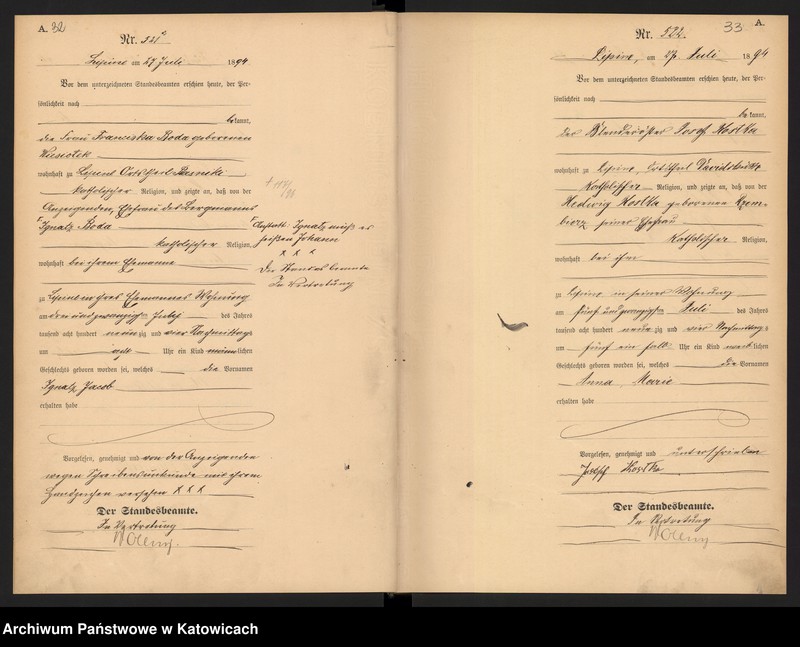 A. 32
Nr. 521
Lipine am 27 Juli 1894
Vor dem unterzeichneten Standesbeamten erschien heute, der Per-
sönlichkeit nach
bekannt,
die Frau Franciska Boda geborenen
wohnhaft zu Lipine Ortstheil Piasniki
katholischer Religion, und zeigte an, daß von der
Anzeigenden, Ehefrau des Bergmanns
Ignatz Boda
katholischer Religion,
wohnhaft bei ihrem Ehemanne
zu Lipine in ihres Ehemannes Wohnung
am des Jahres
tausend acht hundert neunzig und vier Nachmittags
um acht Uhr ein Kind männlichen
Geschlechts geboren worden sei, welches die Vornamen
Ignatz Jacob
erhalten habe
Vorgelesen, genehmigt und von der Anzeigenden
wegen Schreibensunkunde mit ihrem
Handzeichen versehen x x x
Der Standesbeamte.
In Vertretung
Anstatt: Ignatz muß es
heißen Johann
x x x
Der Standesbeamte
In Vertretung
33 A.
Nr. 522.
Lipine, am 27. Juli 1894
Vor dem unterzeichneten Standesbeamten erschien heute, der Per-
sönlichkeit nach
bekannt,
der Josef Kostka
wohnhaft zu Lipine, Ortstheil Davidshütte
Katholischer Religion, und zeigte an, daß von der
Hedwig Kostka geborenen
seiner Ehefrau
Katholischer Religion,
wohnhaft bei ihm
zu Lipine in seiner Wohnung
am fünf und zwanzigsten Juli des Jahres
tausend acht hundert neunzig und vier Nachmittags
um fünf ein halb Uhr ein Kind weiblichen
Geschlechts geboren worden sei, welches die Vornamen
Anna Marie
erhalten habe
Vorgelesen, genehmigt und unterschrieben
Josef Kostka
Der Standesbeamte.
In Vertretung
Archiwum Państwowe w Katowicach